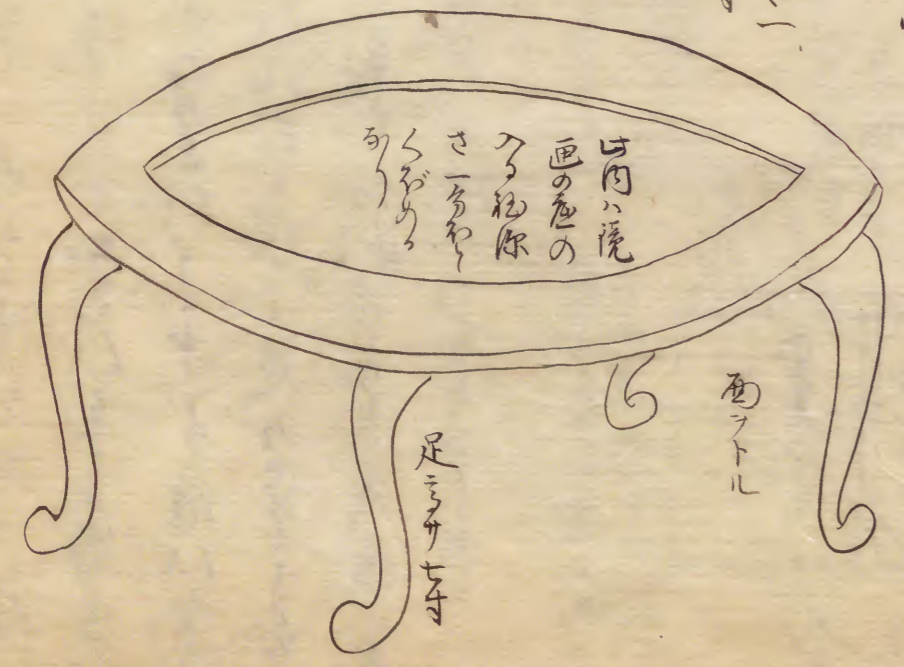 此内ハ鏡
画の底の
入る程深
さ一分ほと
くぼめる
なり
面ヲトル
足高サ七寸